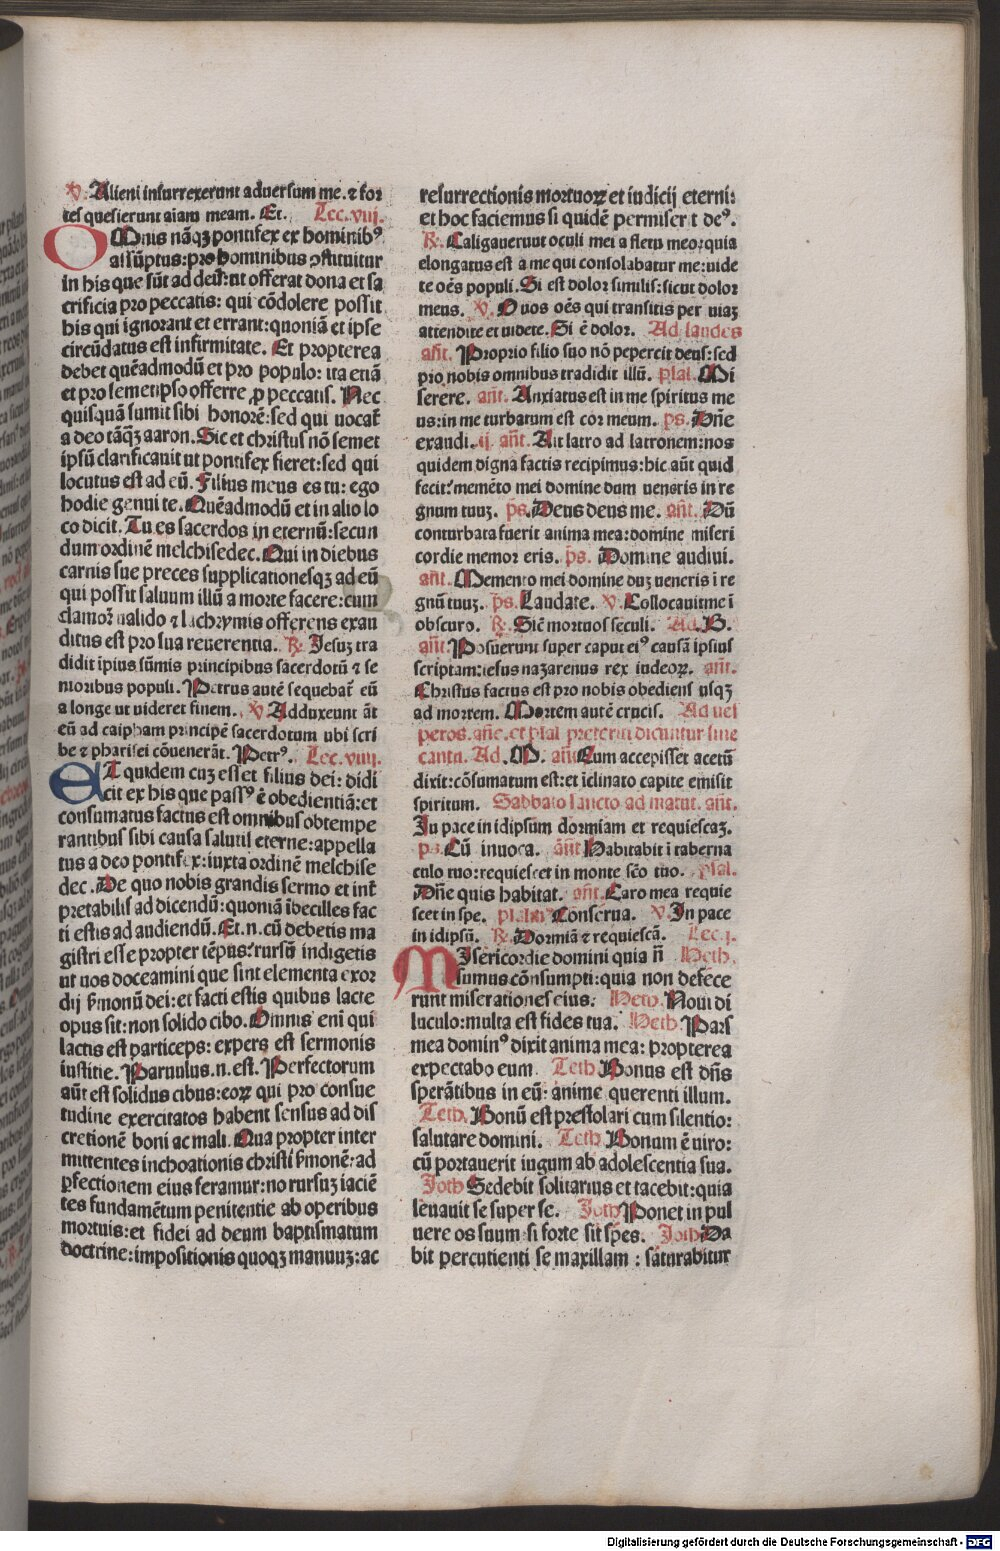 ℣. Alieni insurrexerunt aduersum me. ⁊ for
tes quesierunt aiam meam. Et. Lec. viij.
OMnis nāqꝫ pontifex ex hominibꝰ
assūptus: pro hominibus ꝯstituitur
in his que sūt ad deū: ut offerat dona et sa
crificia pro peccatis: qui cōdolere possit
his qui ignorant et errant: quoniā et ipse
circūdatus est infirmitate. Et propterea
debet quēadmodū et pro populo: ita etiā
et pro semetipso offerre ꝓ peccatis. Nec
quisquā sumit sibi honorē: sed qui uocat̄
a deo tāqꝫ aaron. Sic et christus nō semet
ipsū clarificauit ut pontifex fieret: sed qui
locutus est ad eū. Filius meus es tu: ego
hodie genui te. Quēadmodū et in alio lo
co dicit. Tu es sacerdos in eternū: secun
dum ordinē melchisedec. Qui in diebus
carnis sue preces supplicationesqꝫ ad eū
qui possit saluum illū a morte facere: cum
clamoꝛ ualido ⁊ lachrymis offerens exau
ditus est pro sua reuerentia. ℟. Jesuꝫ tra
didit īpius sūmis principibus sacerdotū ⁊ se
nioribus populi. Petrus autē sequebat̄ eū
a longe ut uideret finem. ℣. Adduxeunt āt
eū ad caipham principē sacerdotum ubi scri
be ⁊ pharisei cōuenerāt. Petrꝰ. Lec. viiij.
ET quidem cuꝫ esset filius dei: didi
cit ex his que passꝰ ē obedientiā: et
consumatus factus est omnibus obtempe
rantibus sibi causa salutis eterne: appella
tus a deo pontifex: iuxta ordinē melchise
dec. De quo nobis grandis sermo et int̄
pretabilis ad dicendū: quoniā ībecilles fac
ti estis ad audiendū. Et. n. cū debetis ma
gistri esse propter tēpus: rursū indigetis
ut uos doceamini que sint elementa exor
dij s̄monū dei: et facti estis quibus lacte
opus sit: non solido cibo. Omnis eni qui
lactis est particeps: expers est sermonis
iustitie. Paruulus. n. est. Perfectorum
aūt est solidus cibus: eoꝝ qui pro consue
tudine exercitatos habent sensus ad dis
cretionē boni ac mali. Qua propter inter
mittentes inchoationis christi s̄monē: ad
ꝑfectionem eius feramur: no rursuꝫ iaciē
tes fundamētum penitentie ab operibus
mortuis: et fidei ad deum baptismatum
doctrine: impositionis quoqꝫ manuuꝫ: ac
resurrectionis mortuoꝝ et iudicij eterni:
et hoc faciemus si quidē permiserit deꝰ.
℟. Caligaueruut oculi mei a fletu meo: quia
elongatus est a me qui consolabatur me: uide
te oēs populi. Si est dolor similis: sicut dolor
meus. ℣. O uos oēs qui transitis per uiaꝫ
attendite et uidete. Si ē dolor. Ad laudes
an̄t. Proprio filio suo nō pepercit deus: sed
pro nobis omnibus tradidit illū. psal. Mi
serere. an̄t. Anxiatus est in me spiritus me
us: in me turbatum est cor meum. ps. Dn̄e
exaudi. ij. an̄t. Ait latro ad latronem: nos
quidem digna factis recipimus: hic aūt quid
fecit? memēto mei domine dum ueneris in re
gnum tuuꝫ. ps. Deus deus me. an̄t. Dū
conturbata fuerit anima mea: domine miseri
cordie memor eris. ps. Domine audiui.
an̄t. Memento mei domine duꝫ ueneris ī re
gnū tuuꝫ. ps. Laudate. ℣. Collocauit me ī
obscuro. ℟. Sic̄ mortuos seculi. Ad. B.
an̄t. Posuerunt super caput eiꝰ causā ipsius
scriptam: iesus naꝫarenus rex iudeoꝝ. an̄t.
Christus factus est pro nobis obediens usqꝫ
ad mortem. Mortem autē crucis. Ad ues
peros. an̄e. et psal preteriti dicuntur sine
cantu. Ad. M. an̄t Cum accepisset acetū
dixit: cōsumatum est: et īclinato capite emisit
spiritum. Sabbato sancto ad matut. an̄t.
In pace in idipsum dormiam et requiescaꝫ.
ps. Cū inuoca. an̄t Habitabit ī taberna
culo tuo: requiescet in monte scō tuo. psal.
Dn̄e quis habitat. an̄t. Caro mea requie
scet in spe. psalm Conserua. ℣. In pace
in idipsū. ℟. Dormiā ⁊ requiescā. Lec. j.
MIsericordie domini quia n̄ Heth.
sumus cōnsumpti: quia non defece
runt miserationes eius. Heth. Noui di
luculo: multa est fides tua. Heth. Pars
mea dominꝰ dixit anima mea: propterea
expectabo eum. Teth Bonus est dn̄s
sperātibus in eū: anime querenti illum.
Teth. Bonū est prestolari cum silentio:
salutare domini. Teth Bonum ē uiro:
cū portauerit iugum ab adolescentia sua.
Joth Sedebit solitarius et tacebit: quia
leuauit se super se. Joth Ponet in pul
uere os suum: si forte sit spes. Joth Da
bit percutienti se maxillam: saturabitur
Digitalisierung gefördert durch die Deutsche Forschungsgemeinschaft - DFG